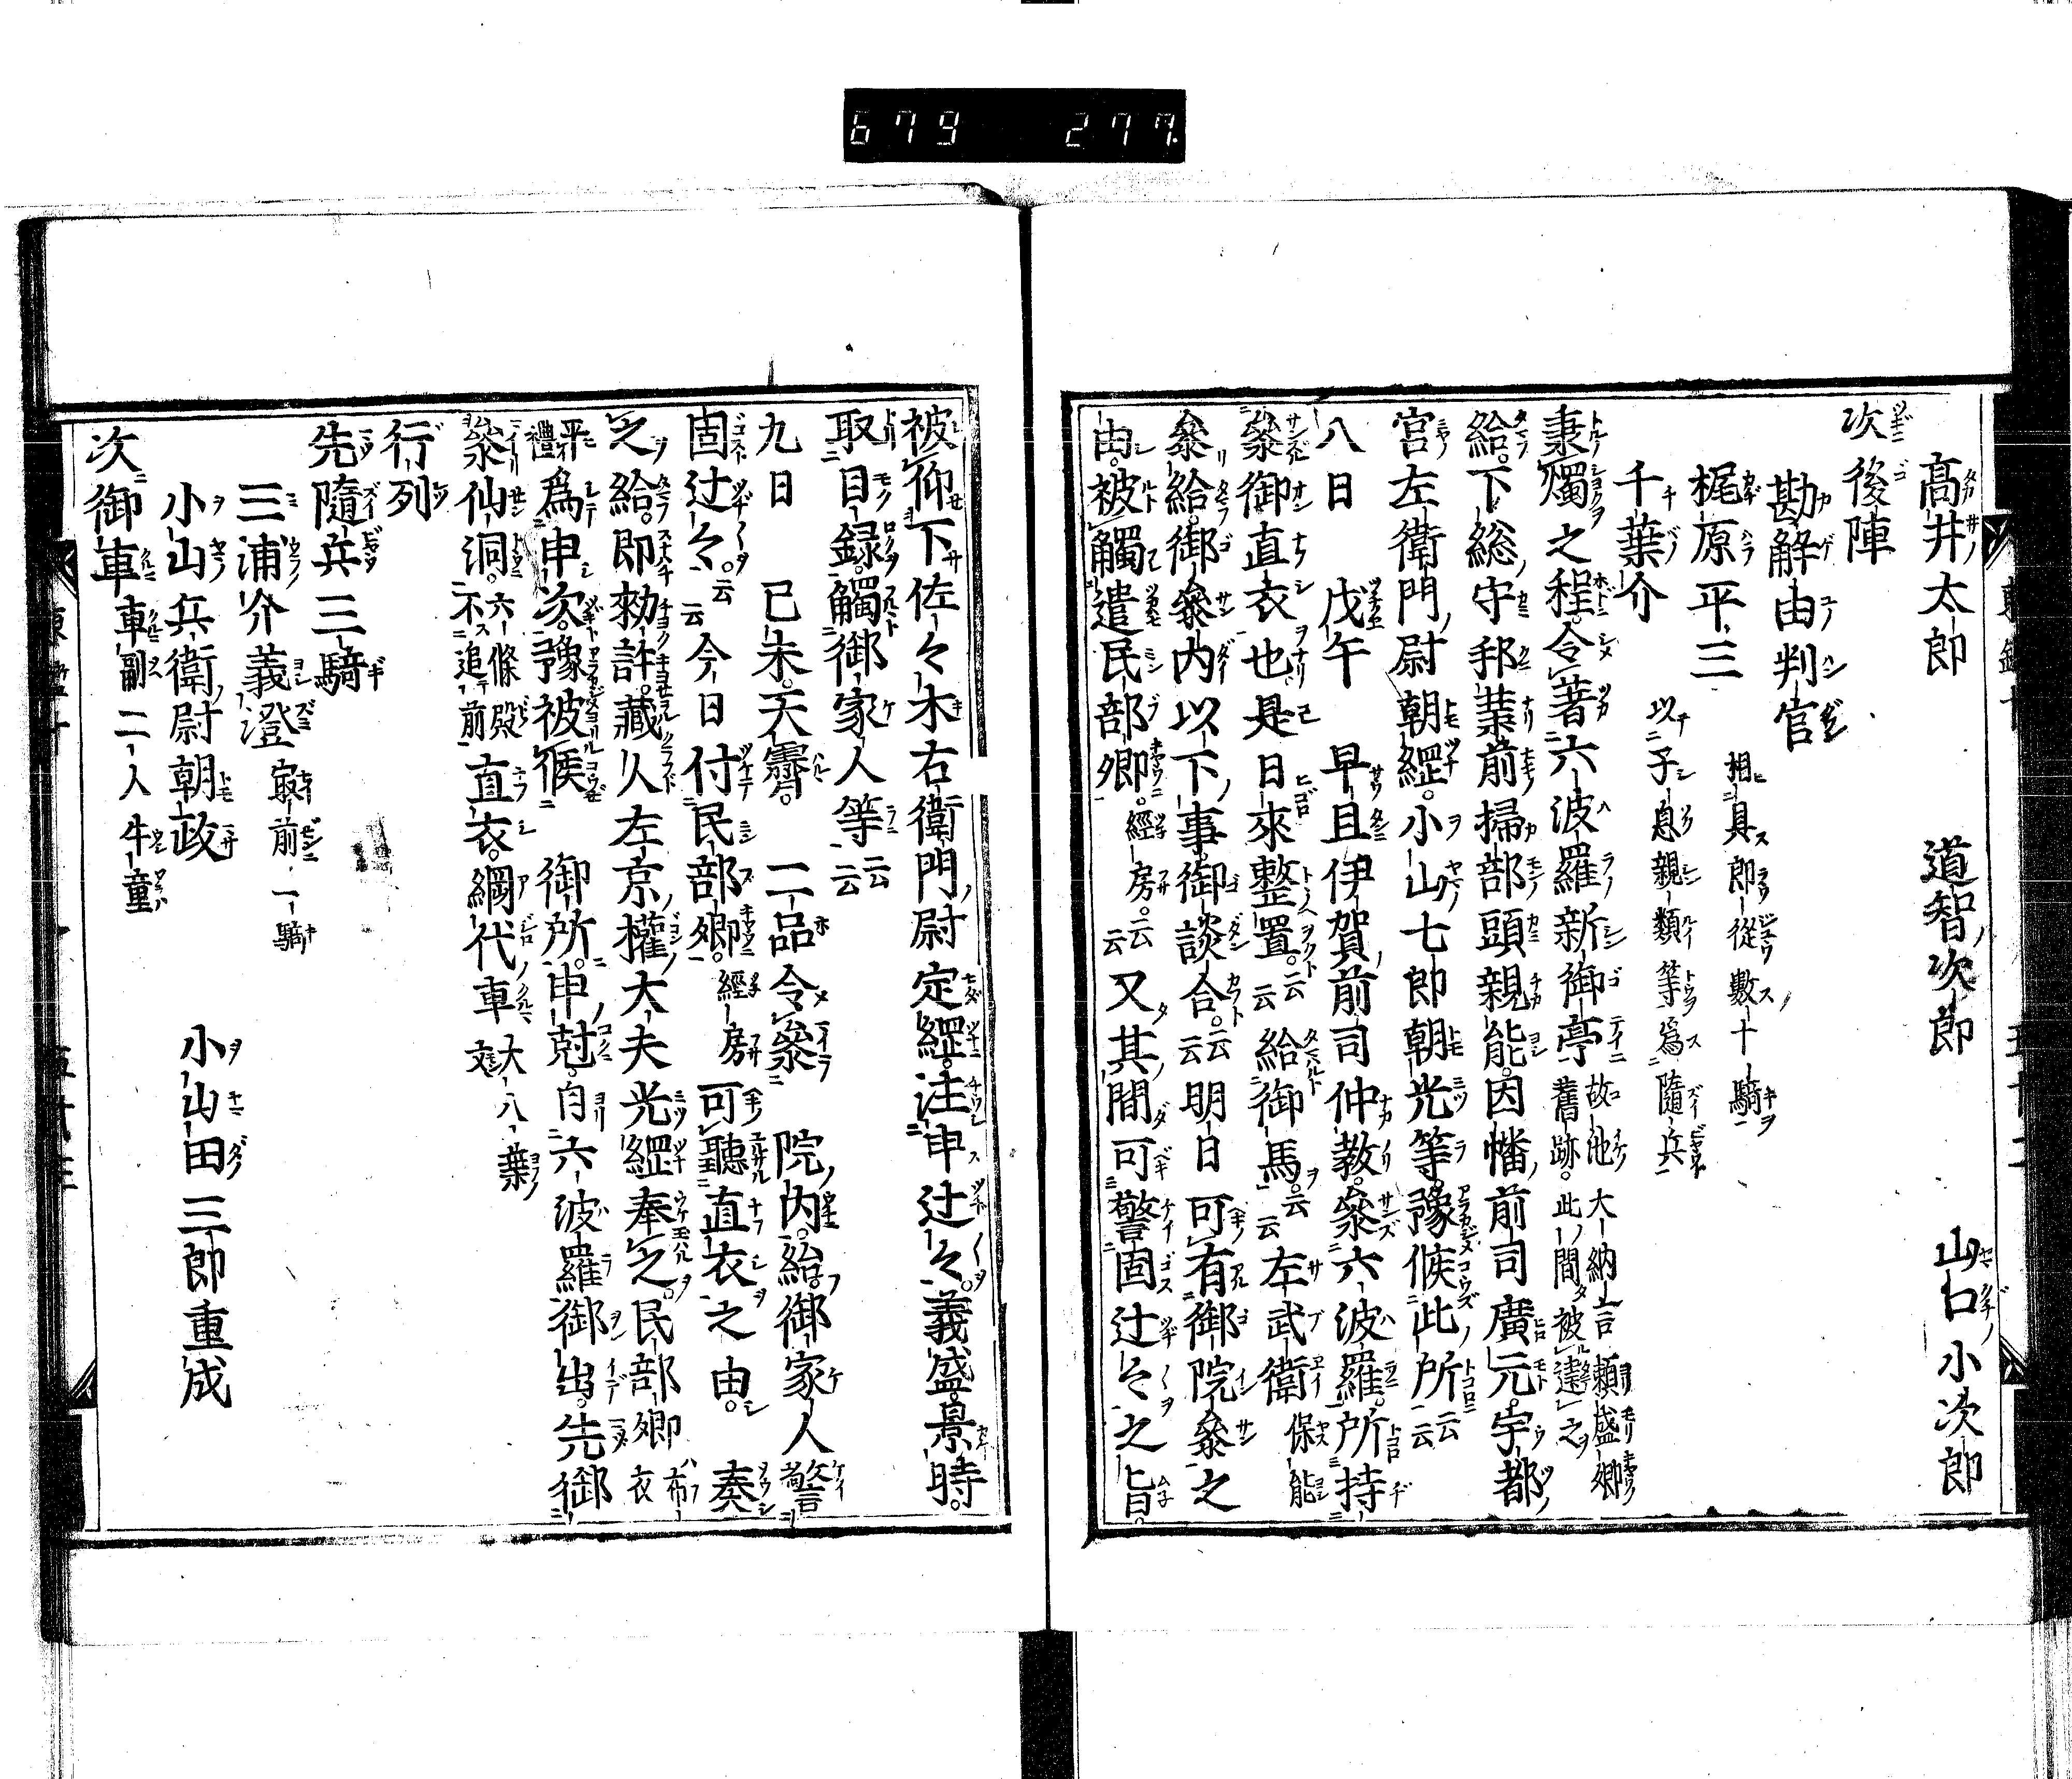 679 277
高井太郎 道智次郎 山口小次郎
次後陣
勘解由判官
梶原平三 相具郎従數十騎
千葉介 以子息親類等為隨兵
秉燭之程。令著六波羅新御亭 故池大納言頼盛卿舊跡。此間被建之
給。下総守邦業前掃部頭親能。因幡前司廣元。宇都
宮左衛門尉朝綱。小山七郎朝光等。豫候此所云云
八日 戊午 早旦伊賀前司仲教。參六波羅。所持
參御直衣也是日來整置。云云給御馬。云云左武衛保能
參給。御參内以下事。御談合。云云明日可有御院參之
由。被觸遣民部卿。經房。云云又其間可警固辻々之旨。
被仰下佐々木右衛門尉定綱。注申辻々。義盛。景時。
取目録。觸御家人等云云
九日 己未。天霽。 二品令參 院内。給。御家人警
固辻々。云云今日付民部卿。經房可聽直衣之由。奏
之給。即勅許。藏人左京權大夫光綱奉之。民部卿布衣
平禮爲申次。豫被候 御所。申尅。自六波羅御出。先御
參仙洞。六條殿不追前直衣。網代車大八葉文
行列
先隨兵三騎
三浦介義澄最前一騎
小山兵衛尉朝政 小山田三郎重成
次御車車副二人牛童